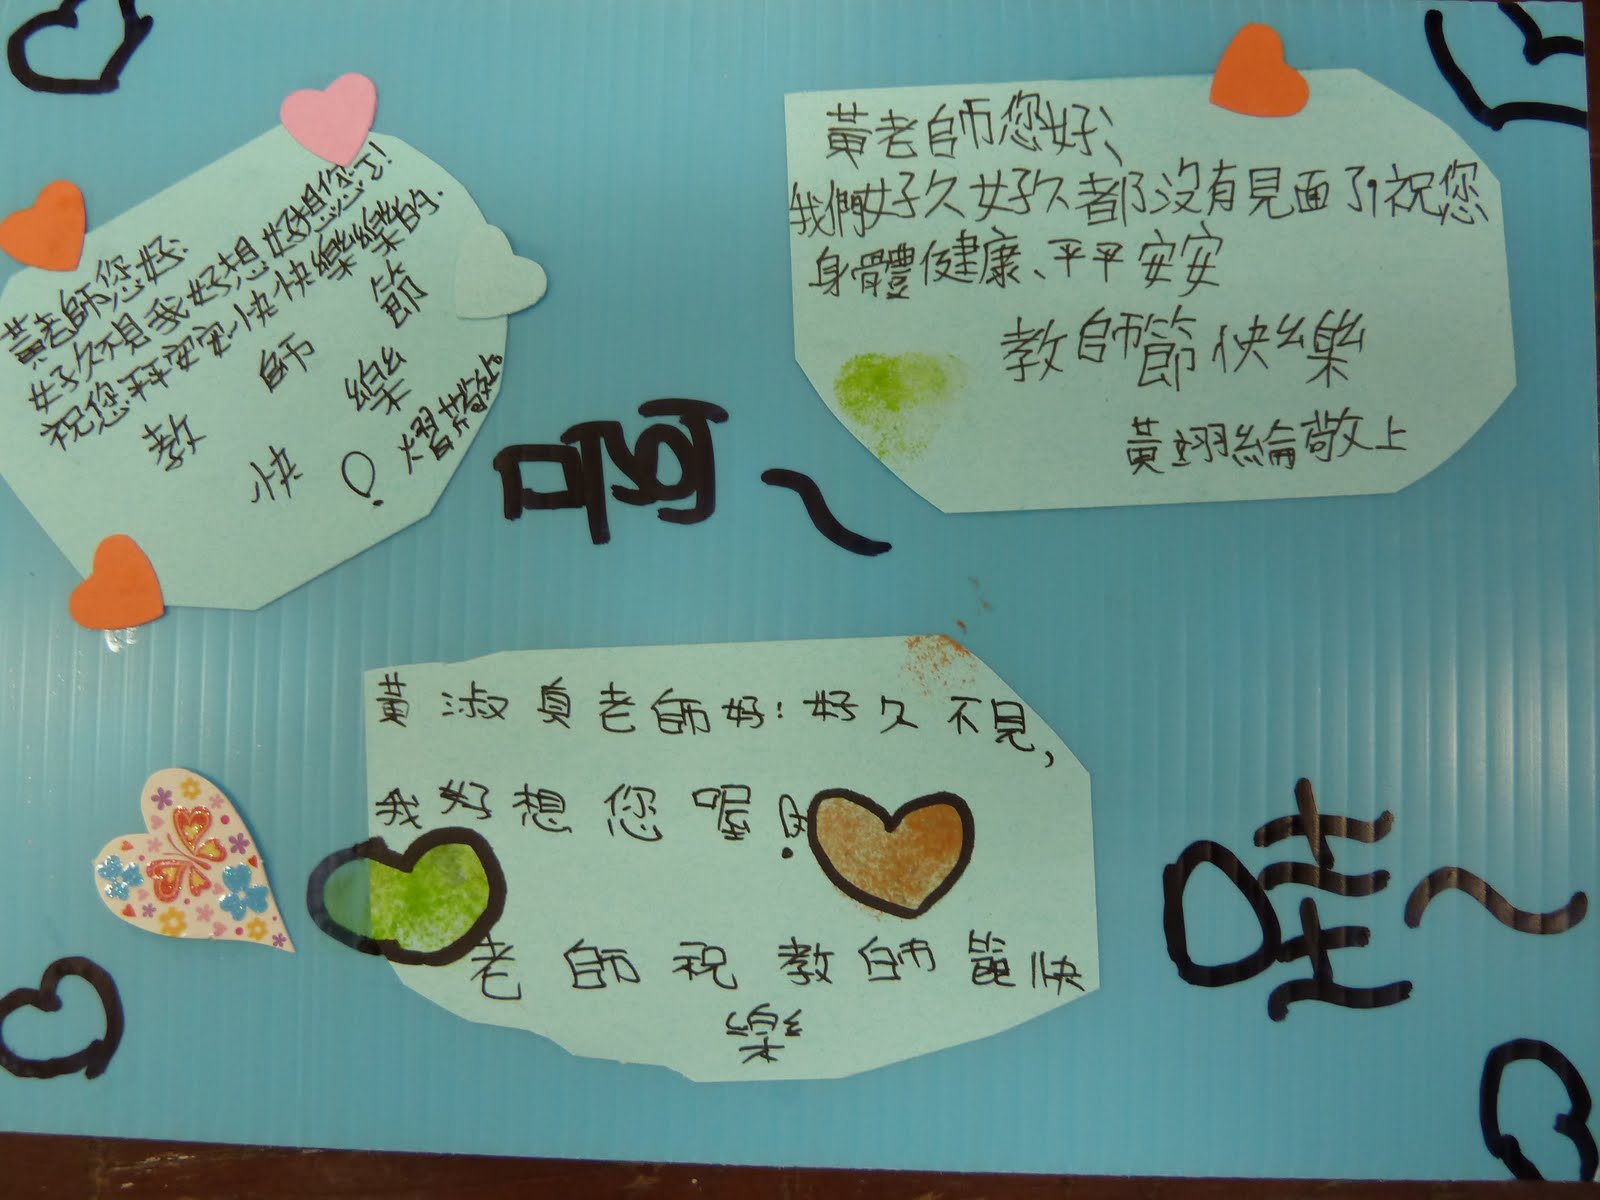 黃老師您好:
好久不見我好想好想您了!
祝您平平安安、快快樂樂的.
教師節
快樂!
黃老師您好、
我們好久好久都沒有見面了,祝您
身體健康、平平安安
教師節快樂
黃翊綸敬上
黃淑貞老師好!好久不見,
我好想您喔!
老師祝教師節快
樂
哇~